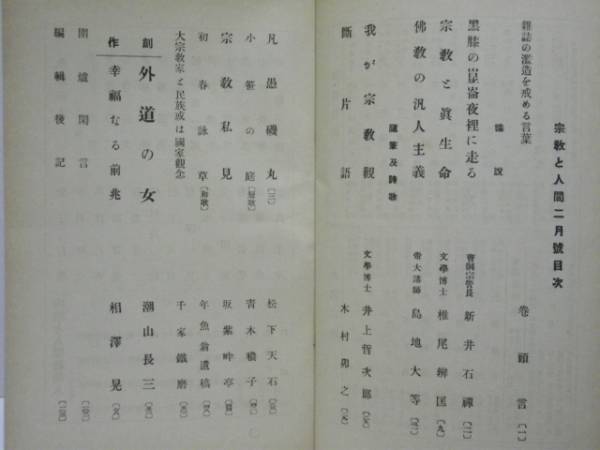 宗教と人間二月號目次
卷頭言
雜誌の濫造を戒める言葉
論説
黑漆の崑崙夜裡に走る 曹洞宗管長 新井石禪
宗教と眞生命 文學博士 椎尾辨匡
佛教の汎人主義 帝大講師 島地大等
隨筆及詩歌
我が宗教觀 文學博士 井上哲次郎
斷片語 木村卯之
凡愚磯丸〔三〕 松下天石
小笹の庭〔短歌〕 青木穠子
宗教私見 坂紫吟亭
初春詠草〔和歌〕 年魚翁遺稿
大宗教家と民族或は國家觀念 千家鐵麿
創作
外道の女 潮山長三
幸福なる前兆 相澤晃
圍爐閑言
編輯後記